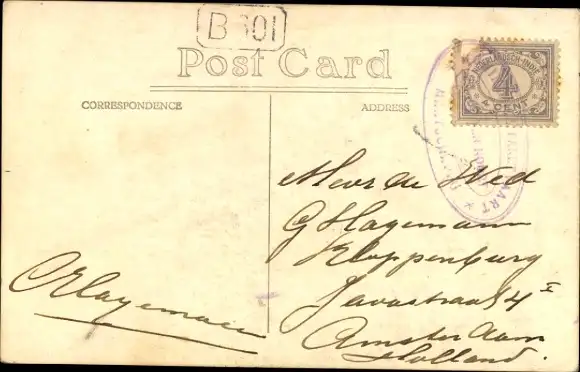 B 601
Post Card
CORRESPONDENCE
ADDRESS
NEDERLANDSCH-INDIE
4
4 CENT
Mevr de Wed
G Hagemann
Kloppenburg
Javastraat 4 I
Amsterdam
Holland.
CHagemann